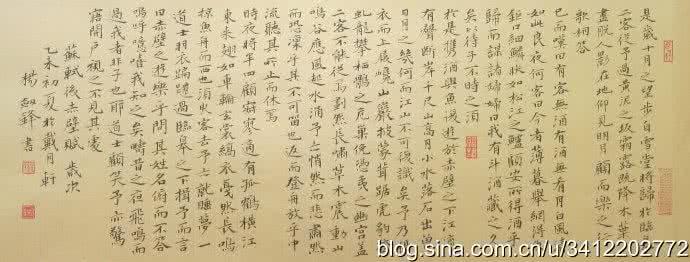 是歲十月之望步自雪堂將歸於臨皋
二客從予過黃泥之坂霜露既降木葉
盡脫人影在地仰見明月顧而樂之行
歌相答
已而嘆曰有客無酒有酒無肴月白風清
如此良夜何客曰今者薄暮舉網得魚
巨口細鱗狀如松江之鱸顧安所得酒乎
歸而謀諸婦婦曰我有斗酒藏之久
矣以待子不時之須
於是攜酒與魚復遊於赤壁之下江流
有聲斷岸千尺山高月小水落石出曾
日月之幾何而江山不可復識矣予乃攝
衣而上履巉巖披蒙茸踞虎豹登
虬龍攀栖鶻之危巢俯馮夷之幽宮蓋
二客不能從焉劃然長嘯草木震動山
鳴谷應風起水涌予亦悄然而悲肅然
而恐凜乎其不可留也返而登舟放乎中
流聽其所止而休焉
時夜將半四顧寂寥適有孤鶴橫江
東來翅如車輪玄裳縞衣戛然長鳴
掠予舟而西也須臾客去予亦就睡夢一
道士羽衣蹁躚過臨皋之下揖予而言
曰赤壁之遊樂乎問其姓名俯而不答
嗚呼噫嘻我知之矣疇昔之夜飛鳴而
過我者非子也耶道士顧笑予亦驚
寤開戶視之不見其處
蘇軾後赤壁賦 歲次
乙未初夏於戴月軒
楊 鋒書
blog.sina.com.cn/u/3412202772